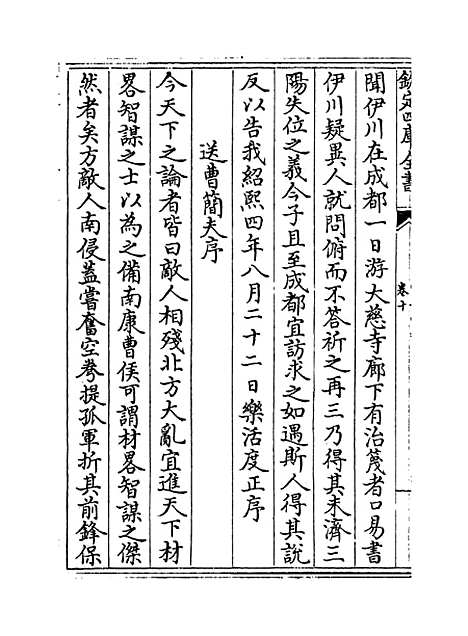 欽定四庫全書
卷十
聞伊川在成都一日游大慈寺廊下有治篾者口易書
伊川疑異人就問俯而不答祈之再三乃得其未濟三
陽失位之義今子且至成都宜訪求之如遇斯人得其説
反以告我紹熙四年八月二十二日樂活度正序
送曹簡夫序
今天下之論者皆曰敵人相殘北方大亂宜進天下材
畧智謀之士以為之備南康曹侯可謂材畧智謀之傑
然者矣方敵人南侵蓋嘗奮空拳提孤軍折其前鋒保